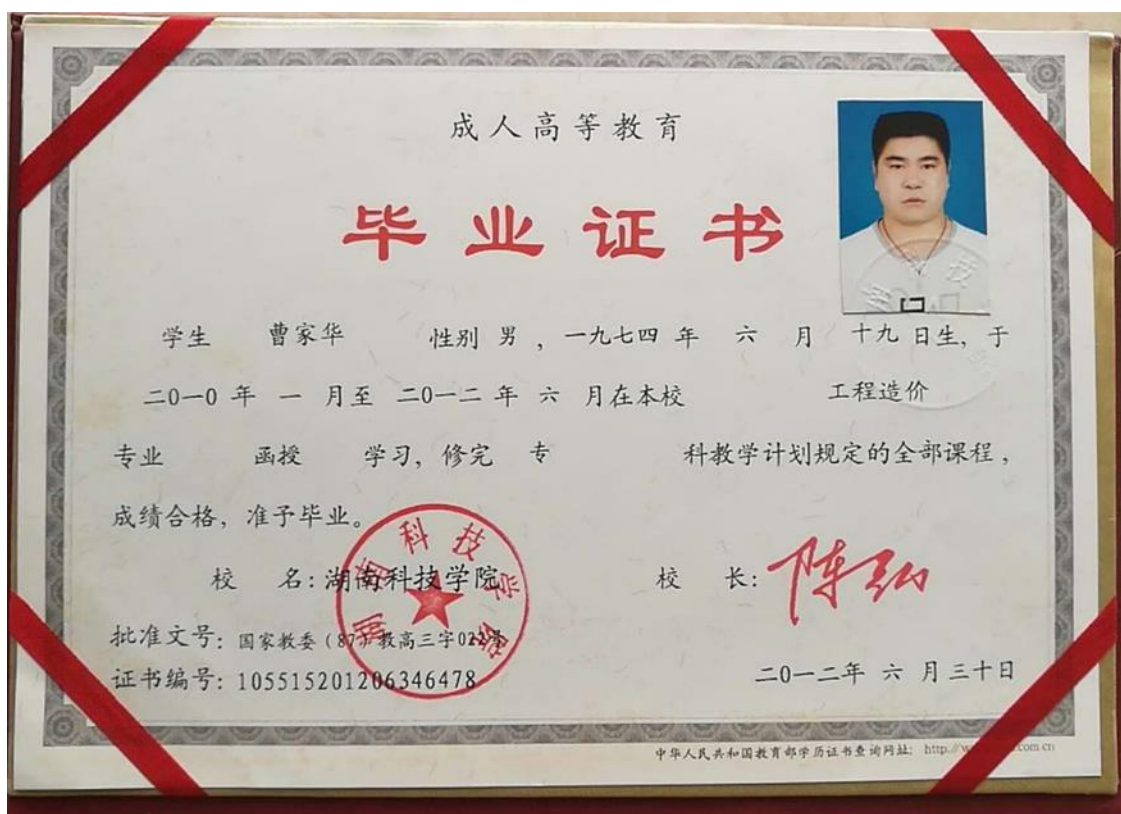 成人高等教育
毕业证书
学生 曹家华 性别 男 , 一九七四 年 六 月 十九 日生, 于
二0一0 年 一 月至 二0一二 年 六 月在本校 工程造价
专业 函授 学习, 修完 专 科教学计划规定的全部课程,
成绩合格, 准予毕业。
校 名: 湖南科技学院 校 长: 陈弘
湖南科技学院
批准文号: 国家教委 (87) 教高三字022号
证书编号: 105515201206346478
二0一二年 六 月三十日
中华人民共和国教育部学历证书查询网址: http://w .com.cn